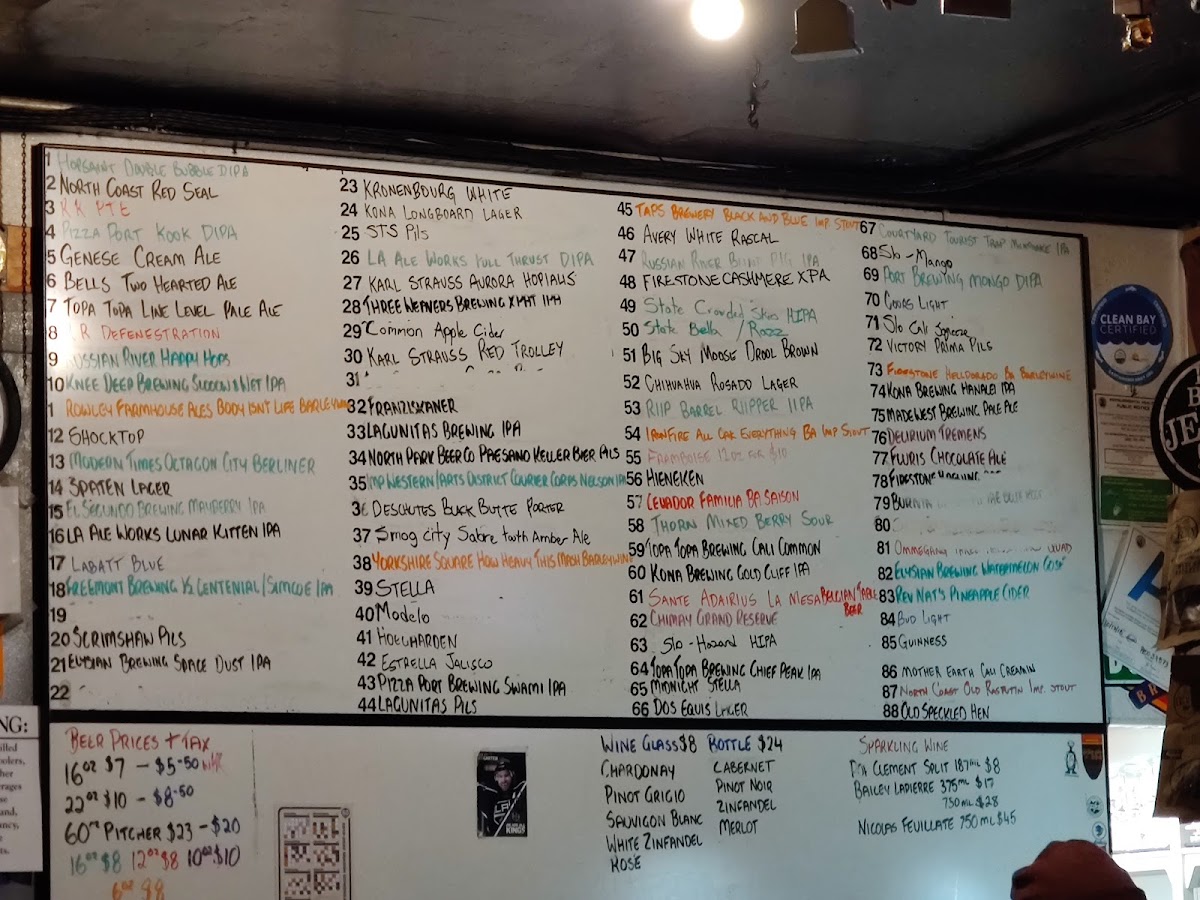 1 Hopsaint Double Bubble DIPA
2 North Coast Red Seal
3 R.R. PTE
4 Pizza Port Kook DIPA
5 Genese Cream Ale
6 Bells Two Hearted Ale
7 Topa Topa Line Level Pale Ale
8 R Defenestration
9 ussian River Happy Hops
10 Knee Deep Brewing Suddenly Wet IPA
1 Rowley Farmhouse Ales Body Isn't Life Barleywine
12 Shocktop
13 Modern Times Octagon City Berliner
14 Spaten Lager
15 El Segundo Brewing Mayberry IPA
16 LA Ale Works Lunar Kitten IPA
17 Labatt Blue
18 Freemont Brewing Vs Centenial/Simcoe IPA
19
20 Scrimshaw Pils
21 Elysian Brewing Space Dust IPA
22
23 Kronenbourg White
24 Kona Longboard Lager
25 STS Pils
26 LA Ale Works Full Thrust DIPA
27 Karl Strauss Aurora Hopialis
28 Three Weavers Brewing Expat IPA
29 Common Apple Cider
30 Karl Strauss Red Trolley
31
32 Franziskaner
33 Lagunitas Brewing IPA
34 North Park Beer Co Paesano Keller Bier Pils
35 Imp Western/Arts District Courier Corps Nelson IPA
36 Descutes Black Butte Porter
37 Smog city Sabre tooth Amber Ale
38 Yorkshire Square How Heavy This Mash Barleywine
39 Stella
40 Modelo
41 Hoegharden
42 Estrella Jalisco
43 Pizza Port Brewing Swami IPA
44 Lagunitas Pils
45 Taps Brewery Black and Blue Imp. Stout
46 Avery White Rascal
47 Russian River Blind Pig IPA
48 Firestone Cashmere XPA
49 State Crowded Skies HIPA
50 State Bella / Razz
51 Big Sky Moose Drool Brown
52 Chihuahua Rosado Lager
53 Riip Barrel Riipper IIPA
54 Ironfire All Oak Everything BA Imp Stout
55 Framboise 12oz for $10
56 Hieneken
57 Cellador Familia BA Saison
58 Thorn Mixed Berry Sour
59 Topa Topa Brewing Cali Common
60 Kona Brewing Gold Cliff IPA
61 Sante Adairius La Mesa Belgian Table Beer
62 Chimay Grand Reserve
63 Slo - Hazard HIPA
64 Topa Topa Brewing Chief Peak IPA
65 Midnight Stella
66 Dos Equis Lager
67 Courtyard Tourist Trap Maintenance IPA
68 Slo - Mango
69 Port Brewing Mongo DIPA
70 Coors Light
71 Slo Cali Squeeze
72 Victory Prima Pils
73 Firestone Helldorado BA Barleywine
74 Kona Brewing Hanalei IPA
75 Madewest Brewing Pale Ale
76 Delirium Tremens
77 Fluris Chocolate Ale
78 Firestone
79
80
81 Ommegang Quad
82 Elysian Brewing Watermelon Gose
83 Rev Nat's Pineapple Cider
84 Bud Light
85 Guinness
86 Mother Earth Cali Creamin
87 North Coast Old Rasputin Imp. Stout
88 Old Speckled Hen
Beer Prices + Tax
16oz $7 - $5.50
22oz $10 - $8.50
60oz Pitcher $23 - $20
16oz $8 12oz $8 10oz $10
6oz $8
Wine Glass $8 Bottle $24
Chardonay
Pinot Grigio
Sauvigon Blanc
White Zinfandel
Rosé
Cabernet
Pinot Noir
Zinfandel
Merlot
Sparkling Wine
Clement Split 187ml $8
Bailey Lapierre 375ml $17
750ml $28
Nicolas Feuillate 750ml $45
CLEAN BAY
CERTIFIED
KINGS
NG: